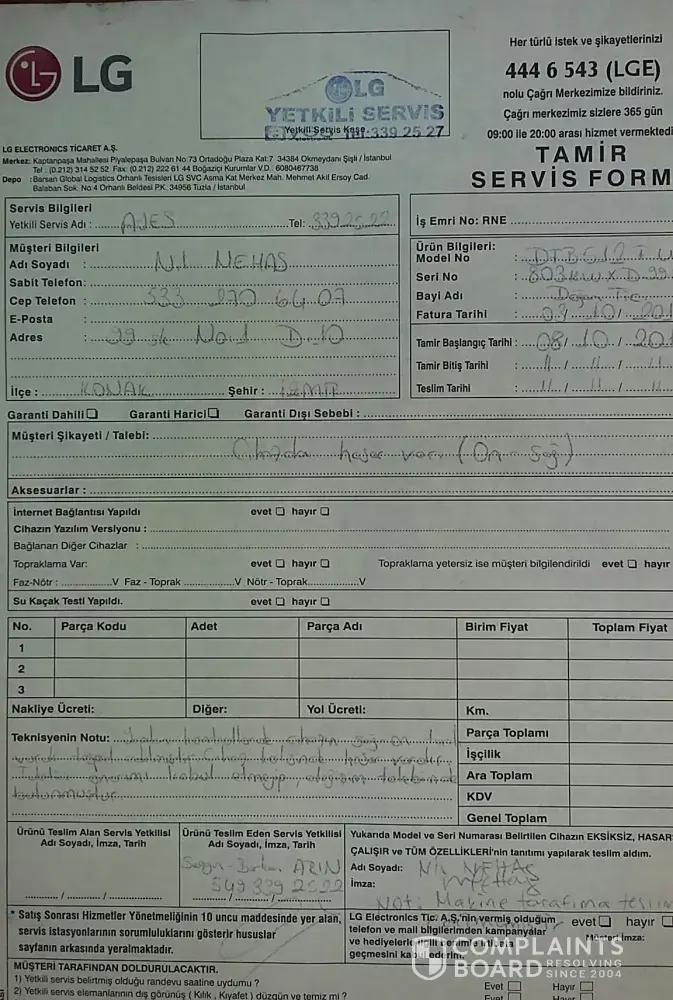 LG
LG
YETKİLİ SERVİS
Yetkili Servis Kaşe Tel:339 25 27
Her türlü istek ve şikayetlerinizi
444 6 543 (LGE)
nolu Çağrı Merkezimize bildiriniz.
Çağrı merkezimiz sizlere 365 gün
09:00 ile 20:00 arası hizmet vermektedi
LG ELECTRONICS TİCARET A.Ş.
Merkez: Kaptanpaşa Mahallesi Piyalepaşa Bulvarı No:73 Ortadoğu Plaza Kat:7 34384 Okmeydanı Şişli / İstanbul
Tel : (0.212) 314 52 52 Fax: (0.212) 222 61 44 Boğaziçi Kurumlar V.D. 6080467738
Depo : Barsan Global Logistics Orhanlı Tesisleri LG SVC Asma Kat Merkez Mah. Mehmet Akif Ersoy Cad.
Balaban Sok. No:4 Orhanlı Beldesi P.K. 34956 Tuzla / İstanbul
TAMİR
SERVİS FORM
Servis Bilgileri
Yetkili Servis Adı : AJES Tel: 339 25 22
İş Emri No: RNE
Müşteri Bilgileri
Adı Soyadı : NEHAS
Sabit Telefon:
Cep Telefon : 533 270 64 07
E-Posta :
Adres : 99 sk No.1 D.10
İlçe : KONAK Şehir : İZMİR
Ürün Bilgileri:
Model No :
Seri No :
Bayi Adı :
Fatura Tarihi : / 10 / 201
Tamir Başlangıç Tarihi : 08 / 10 / 201
Tamir Bitiş Tarihi : / /
Teslim Tarihi : / /
Garanti Dahili Garanti Harici Garanti Dışı Sebebi :
Müşteri Şikayeti / Talebi:
Cihazda hasar var. (Ön Sağ)
Aksesuarlar :
İnternet Bağlantısı Yapıldı evet hayır
Cihazın Yazılım Versiyonu :
Bağlanan Diğer Cihazlar :
Topraklama Var: evet hayır Topraklama yetersiz ise müşteri bilgilendirildi evet hayır
Faz-Nötr : V Faz - Toprak V Nötr - Toprak V
Su Kaçak Testi Yapıldı. evet hayır
No. Parça Kodu Adet Parça Adı Birim Fiyat Toplam Fiyat
1
2
3
Nakliye Ücreti: Diğer: Yol Ücreti: Km.
Parça Toplamı
İşçilik
Ara Toplam
KDV
Genel Toplam
Teknisyenin Notu: kontrollerde cihazın sağ ön
hasar vardır.
kabul etmeyip, değişim talebinde
bulunmuştur.
Ürünü Teslim Alan Servis Yetkilisi
Adı Soyadı, İmza, Tarih
Ürünü Teslim Eden Servis Yetkilisi
Adı Soyadı, İmza, Tarih
549 339 2522
Yukarıda Model ve Seri Numarası Belirtilen Cihazın EKSİKSİZ, HASAR
ÇALIŞIR ve TÜM ÖZELLİKLERİ'nin tanıtımı yapılarak teslim aldım.
Adı Soyadı: NEHAS
İmza:
Not: Makine tarafıma teslim
* Satış Sonrası Hizmetler Yönetmeliğinin 10 uncu maddesinde yer alan,
servis istasyonlarının sorumluluklarını gösterir hususlar
sayfanın arkasında yeralmaktadır.
LG Electronics Tic. A.Ş.'nin vermiş olduğum
telefon ve mail bilgilerimden kampanyalar
ve hediyelerle ilgili benimle irtibata
geçmesini kabul ederim.
evet hayır
Müşteri İmza:
MÜŞTERİ TARAFINDAN DOLDURULACAKTIR.
1) Yetkili servis belirtmiş olduğu randevu saatine uydumu ? Evet Hayır
2) Yetkili servis elemanlarının dış görünüş ( Kılık , Kıyafet ) düzgün ve temiz mi ? Evet Hayır
COMPLAINTS
BOARD RESOLVING
SINCE 2004